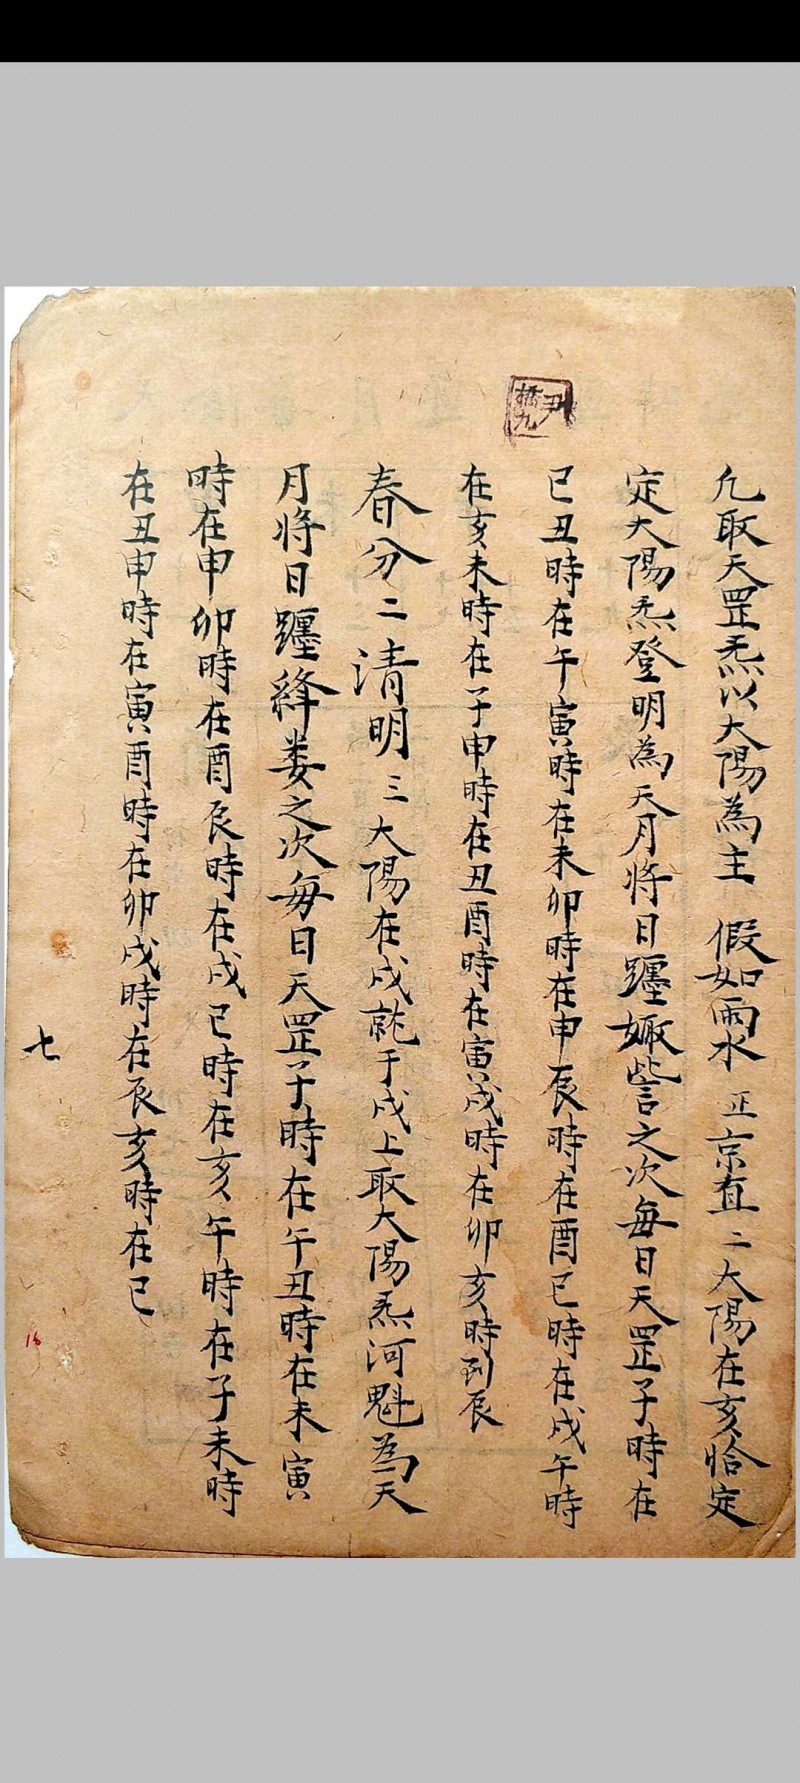 凡取天罡炁以大陽為主 假如雨水正京直二大陽在亥恰定
定大陽炁登明為天月將日躔娵訾之次每日天罡子時在
巳丑時在午寅時在未卯時在申辰時在酉巳時在戌午時
在亥未時在子申時在丑酉時在寅戌時在卯亥時到辰
春分二清明三大陽在戌就于戌上取大陽炁河魁為天
月將日躔絳娄之次每日天罡子時在午丑時在未寅
時在申卯時在酉辰時在戌巳時在亥午時在子未時
在丑申時在寅酉時在卯戌時在辰亥時在巳
七
16